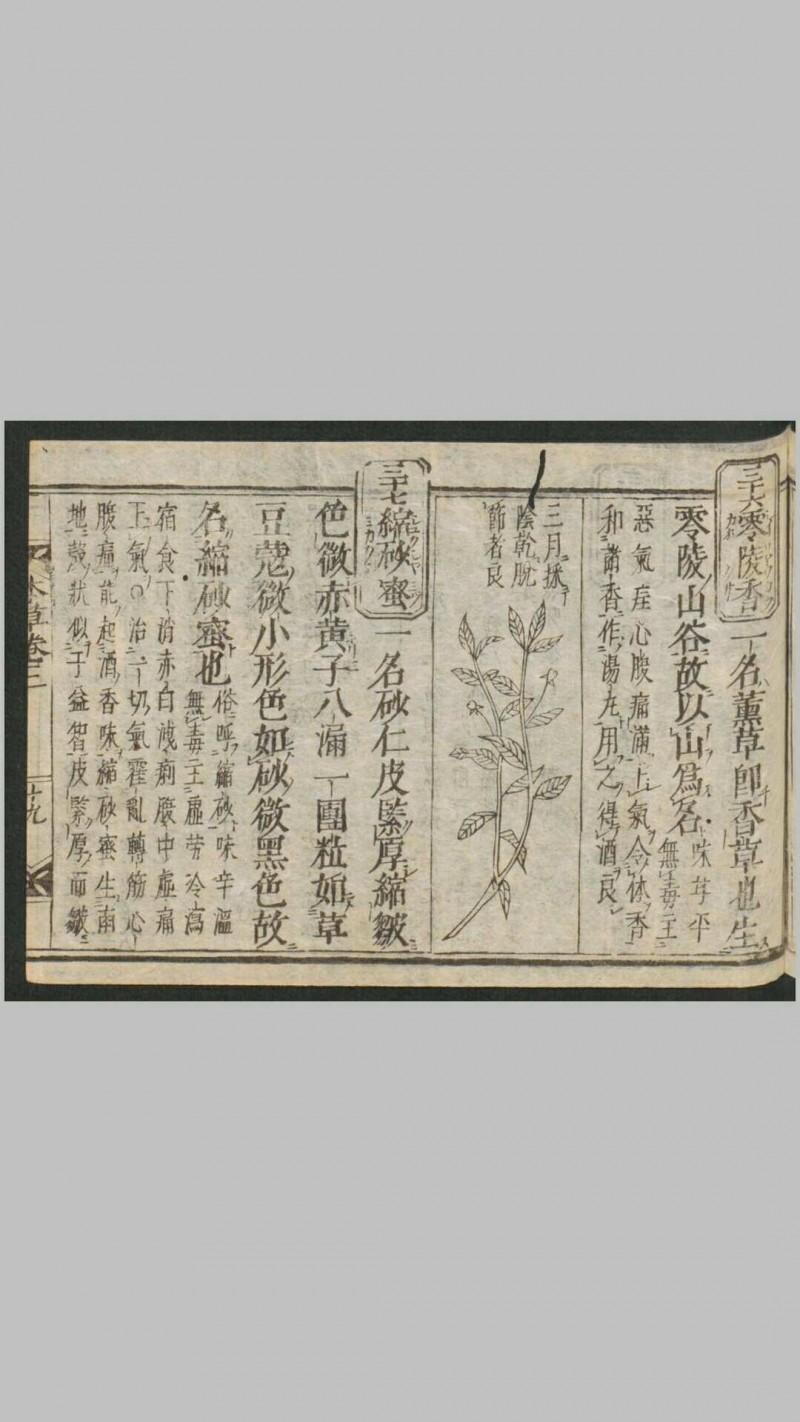 三十六零陵香 一名薰草即香草也生
零陵山谷故以山為名 味苷平
無毒主
惡氣疰心腹痛滿上氣令体香
和諸香作湯丸用之得酒良
三月採
陰乾脫
節者良
三十七縮砂蜜 一名砂仁皮緊厚縮皺
色微赤黃子八漏一團粒如草
豆蔻微小形色如砂微黑色故
名縮砂蜜也 俗呼縮砂味辛溫
無毒主虛劳冷瀉
宿食下消赤白洩痢腹中虛痛
上氣〇治一切氣霍亂轉筋心
腹痛能起酒香味縮砂蜜生南
地殼狀似子益智皮緊厚而皺
本草卷三
廿九